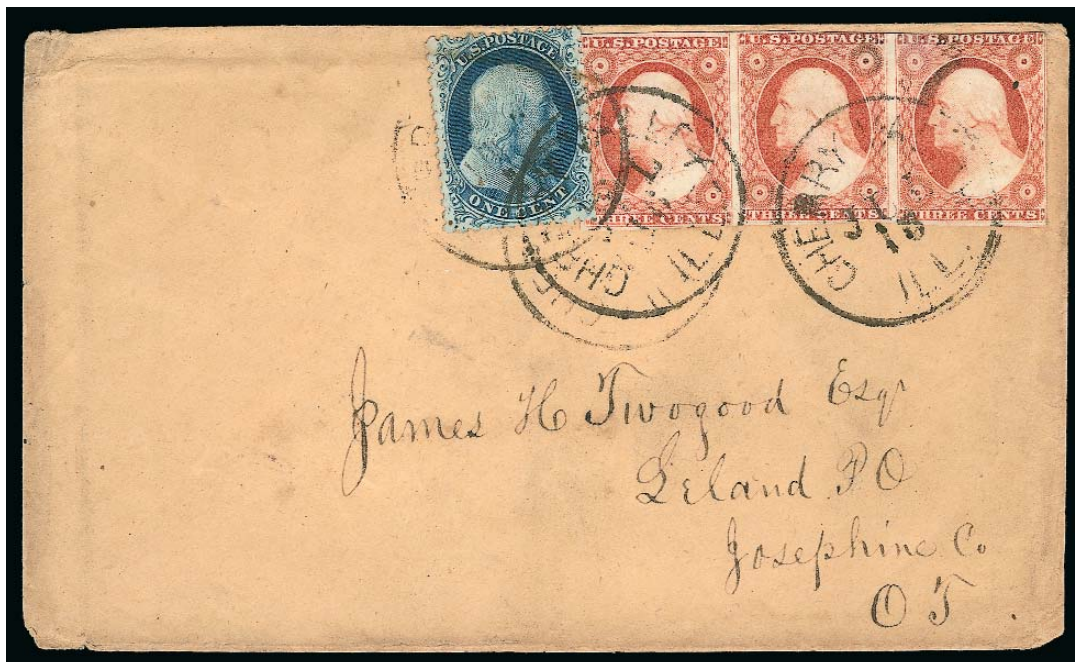 U.S.POSTAGE
ONE CENT
U.S.POSTAGE
THREE CENTS
U.S.POSTAGE
THREE CENTS
U.S.POSTAGE
THREE CENTS
CHERRY
ILL.
CHERRY
15
ILL.
James H Twogood Esqr
Leland PO
Josephine Co
O T.